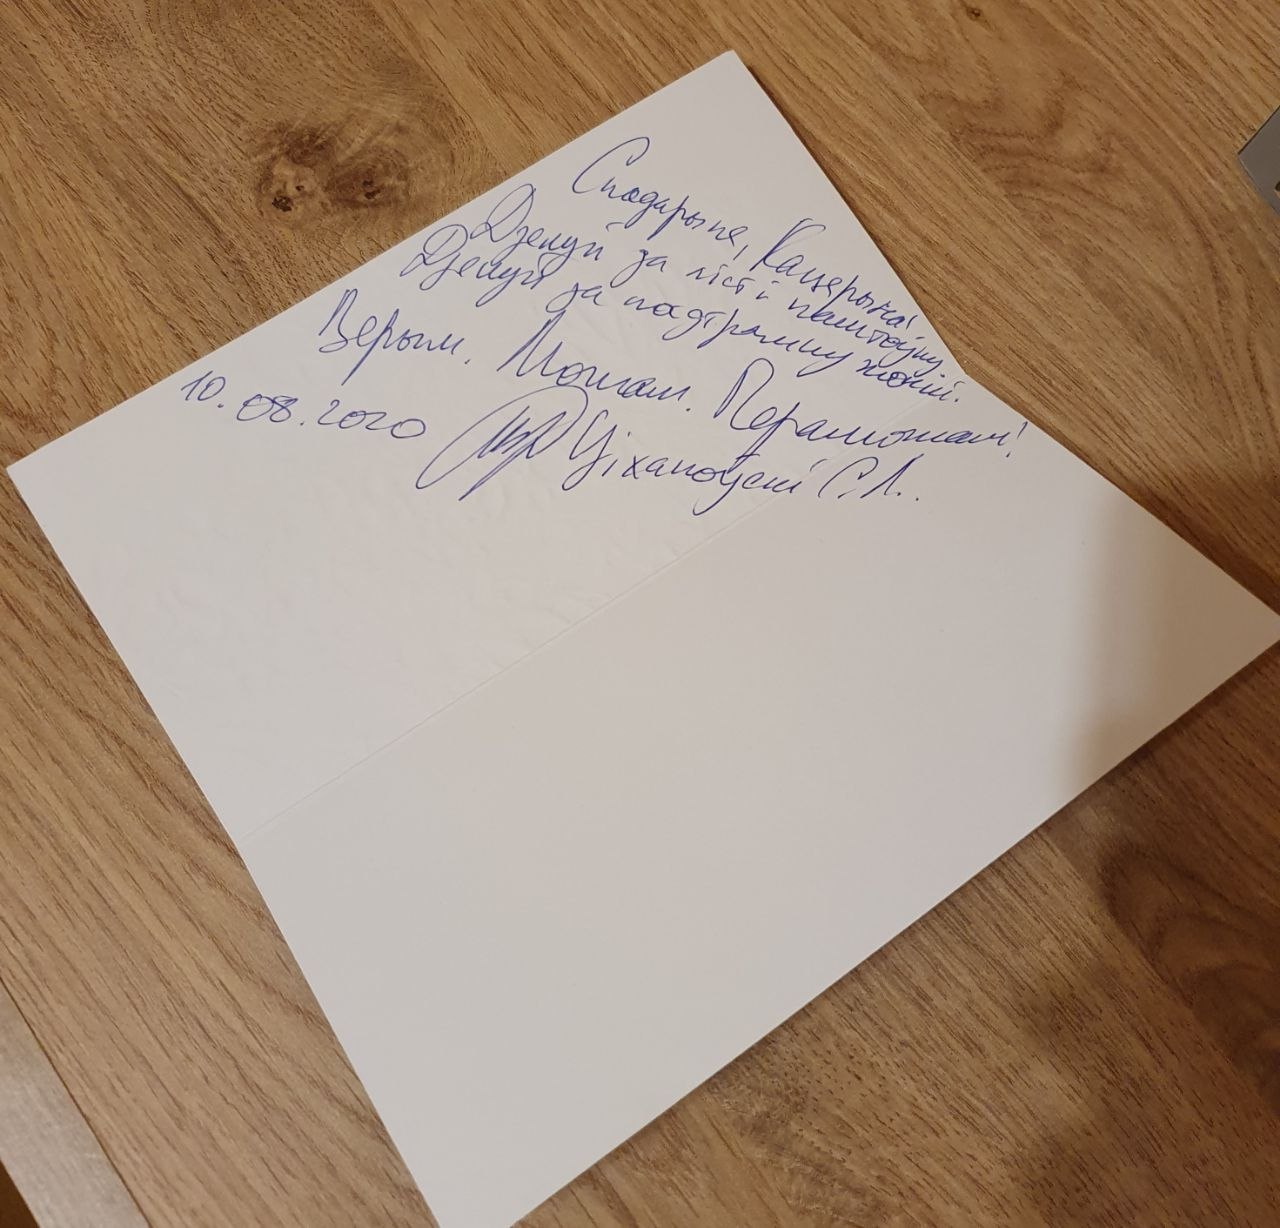 Спадарыня, Кацерына!
Дзякуй за ліст і паштоўку.
Дзякуй за падтрымку жонкі.
Верым. Можам. Пераможам!
10.08.2020 Ціханоўскі С.Л.